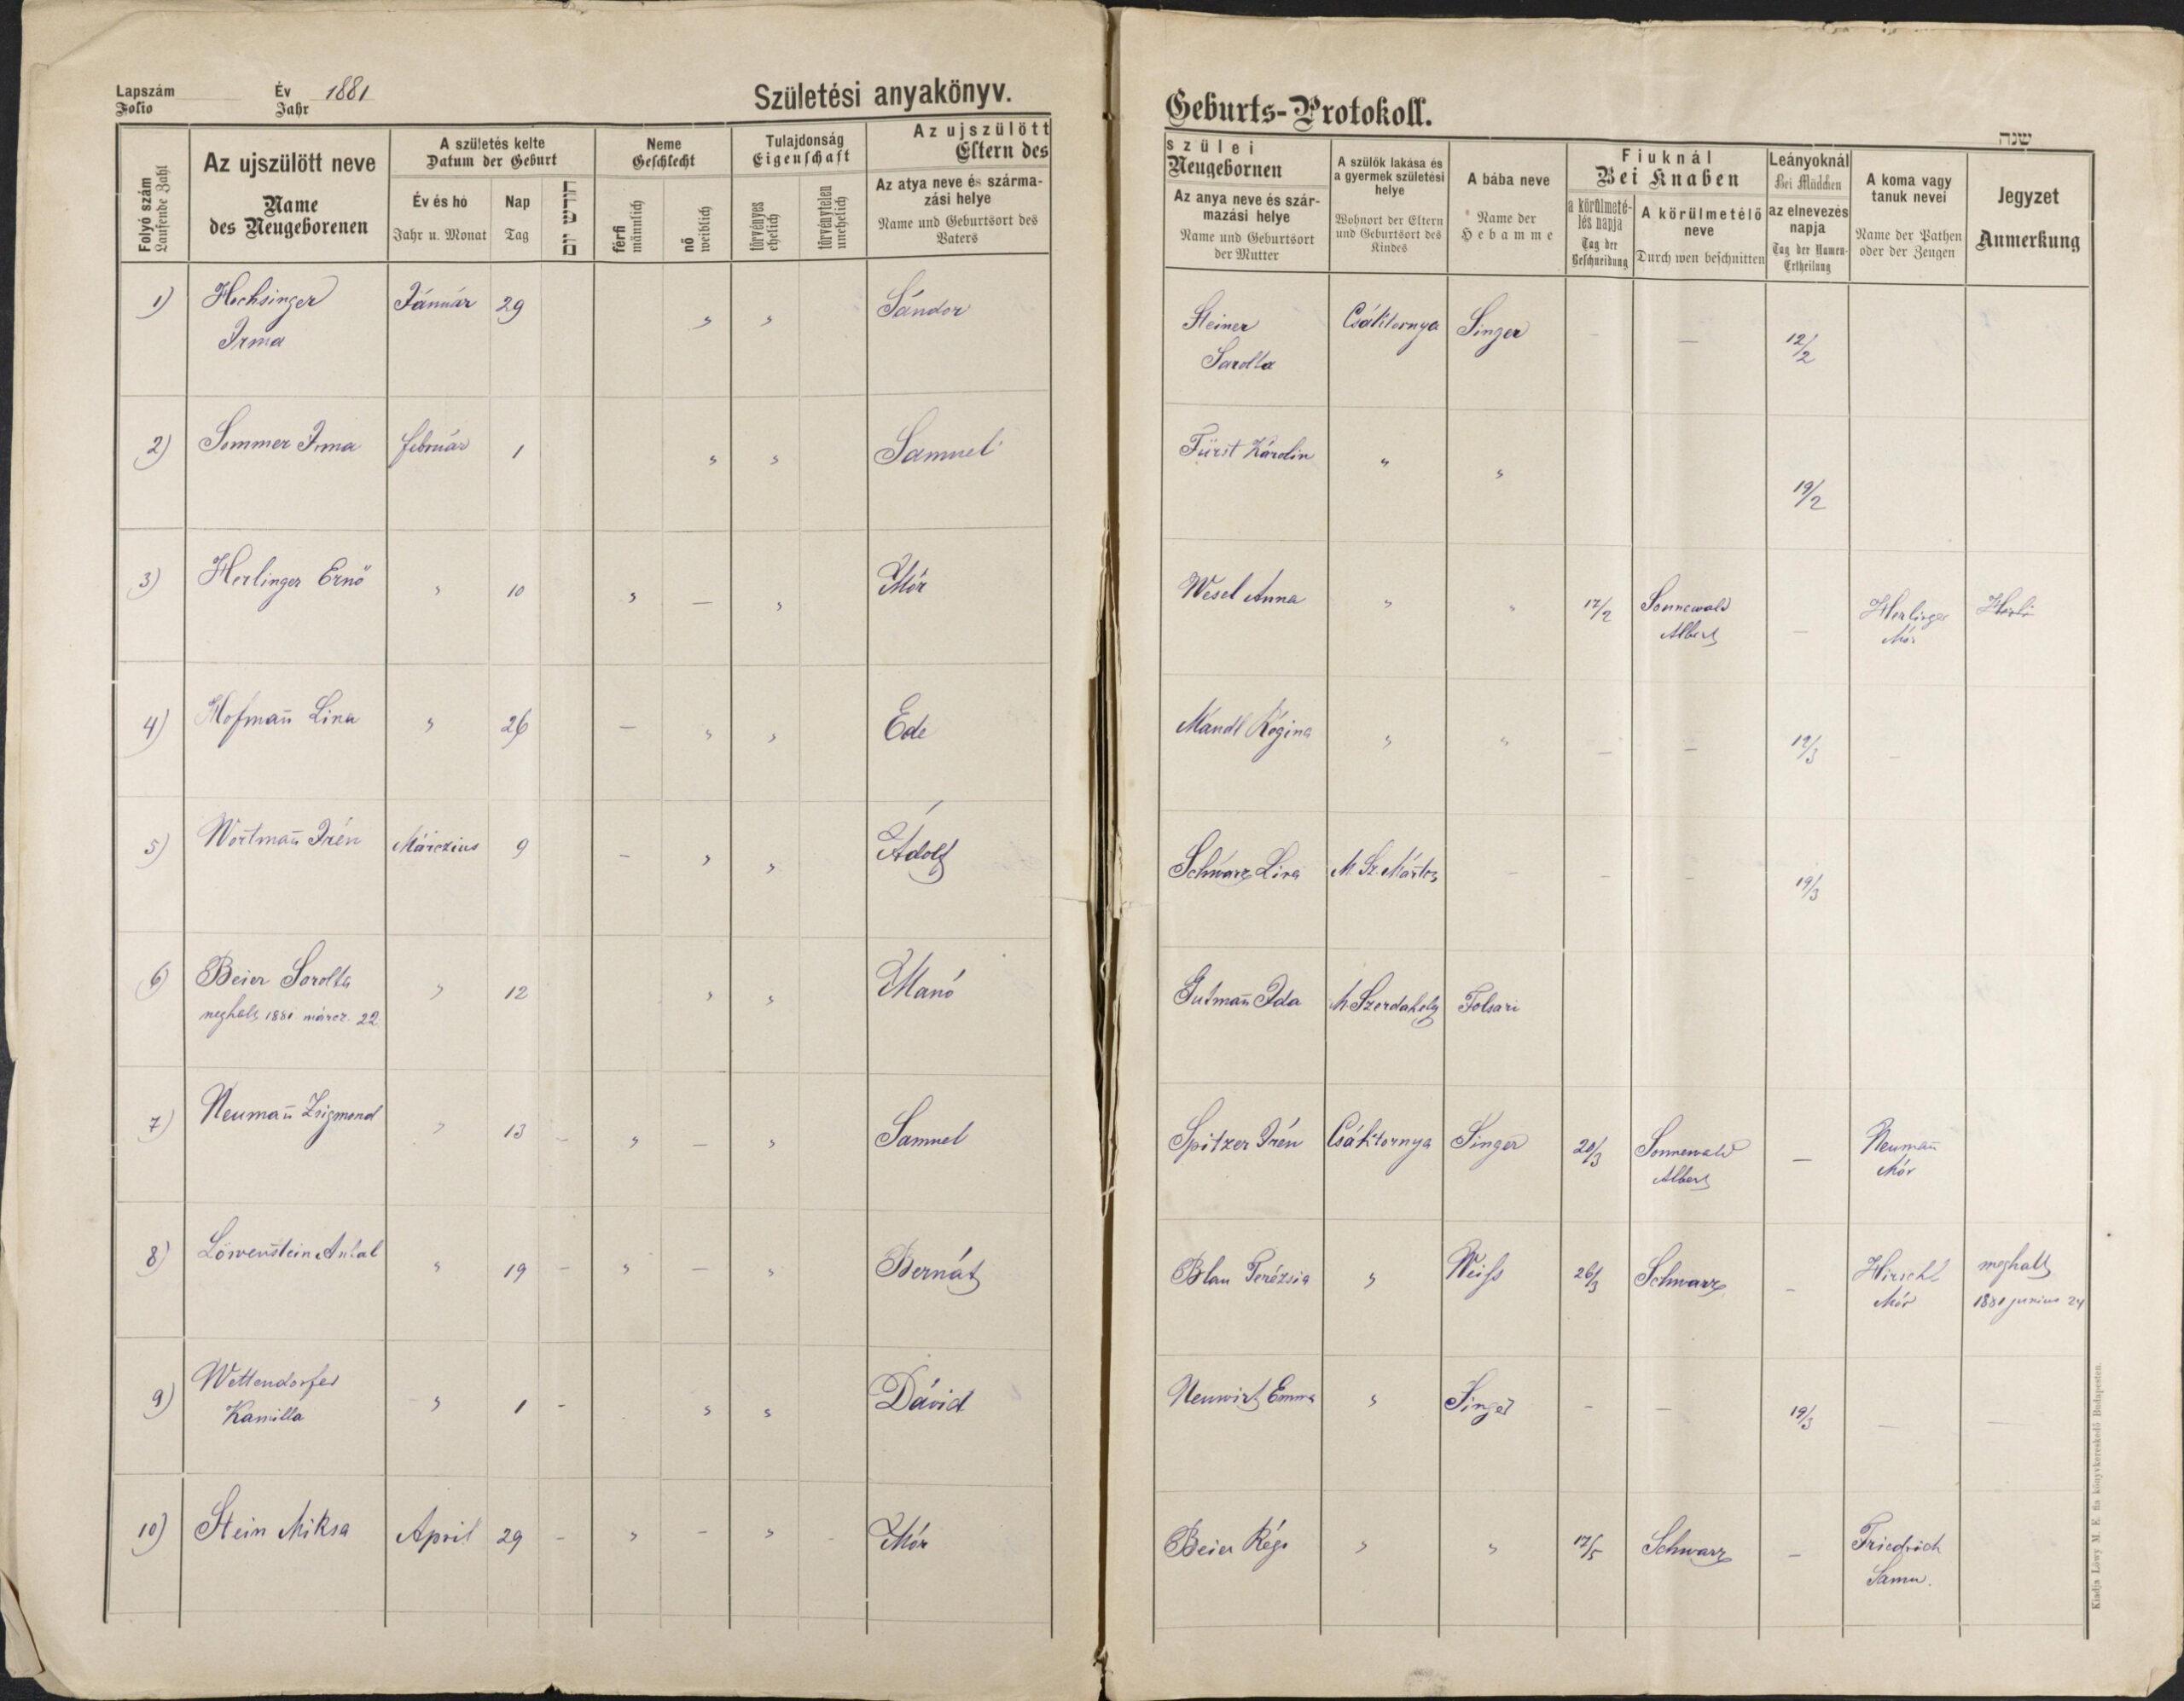 Lapszám
Folio
Év 1881
Jahr
Születési anyakönyv.
Geburts-Protokoll.
שנה
Folyó szám
Laufende Zahl
Az ujszülött neve
Name
des Neugeborenen
A születés kelte
Datum der Geburt
Év és hó
Jahr u. Monat
Nap
Tag
חודש יום
Neme
Geschlecht
férfi
männlich
nő
weiblich
Tulajdonság
Eigenschaft
törvényes
ehelich
törvénytelen
unehelich
Az ujszülött
Eltern des
Az atya neve és szárma-
zási helye
Name und Geburtsort des
Vaters
szülei
Neugebornen
Az anya neve és szár-
mazási helye
Name und Geburtsort
der Mutter
A szülők lakása és
a gyermek születési
helye
Wohnort der Eltern
und Geburtsort des
Kindes
A bába neve
Name der
Hebamme
Fiuknál
Bei Knaben
a körülmeté-
lés napja
Tag der
Beschneidung
A körülmetélő
neve
Durch wen beschnitten
Leányoknál
Bei Mädchen
az elnevezés
napja
Tag der Namen-
Ertheilung
A koma vagy
tanuk nevei
Name der Pathen
oder der Zeugen
Jegyzet
Anmerkung
1) Hochsinger Január 29 " " Sándor Steiner Csáktornya Singer — — 12/2
Irma Sarolta
2) Sommer Irma Február 1 " " Samuel Fürst Károlin " " 19/2
3) Herlinger Ernő " 10 " — " Mór Wesel Anna " " 17/2 Sonnewald — Herlinger
Albert Mór
4) Hofman̄ Lina " 26 — " " Ede Mandl Regina " " — — 12/3 —
5) Wortman̄ Irén Márczius 9 — " " Adolf Schwarz Lina M. Sz. Márton — — — 19/3
6) Beier Sarolta " 12 " " Manó Gutman̄ Ida M Szerdahely Tolsari
meghalt 1881 márcz. 22
7) Neuman̄ Zsigmond " 13 — " — " Samuel Spitzer Irén Csáktornya Singer 20/3 Sonnewald — Neuman̄
Albert Mór
8) Löwenstein Antal " 19 — " — " Bernát Blau Terézsia " Weiss 26/3 Schwarz — Hirschl meghalt
Mór 1881 junius 24
9) Wettendorfer " 1 - " " Dávid Neuwirt Emma " Singer — — 19/3 — —
Kamilla
10) Stein Miksa April 29 - " — " - Mór Beier Régi " " 17/5 Schwarz — Friedrich
Samu.
Kiadja Löwy M. E. fia könyvkereskedő Budapesten.